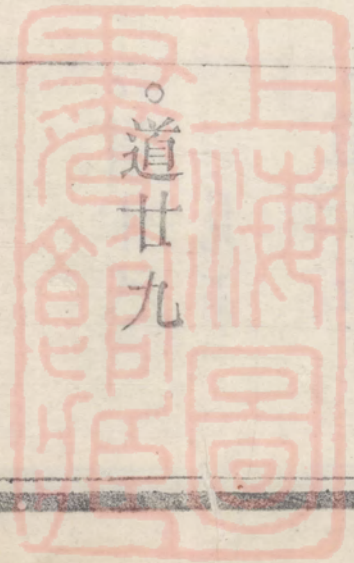 。道廿九
上海圖
書館藏